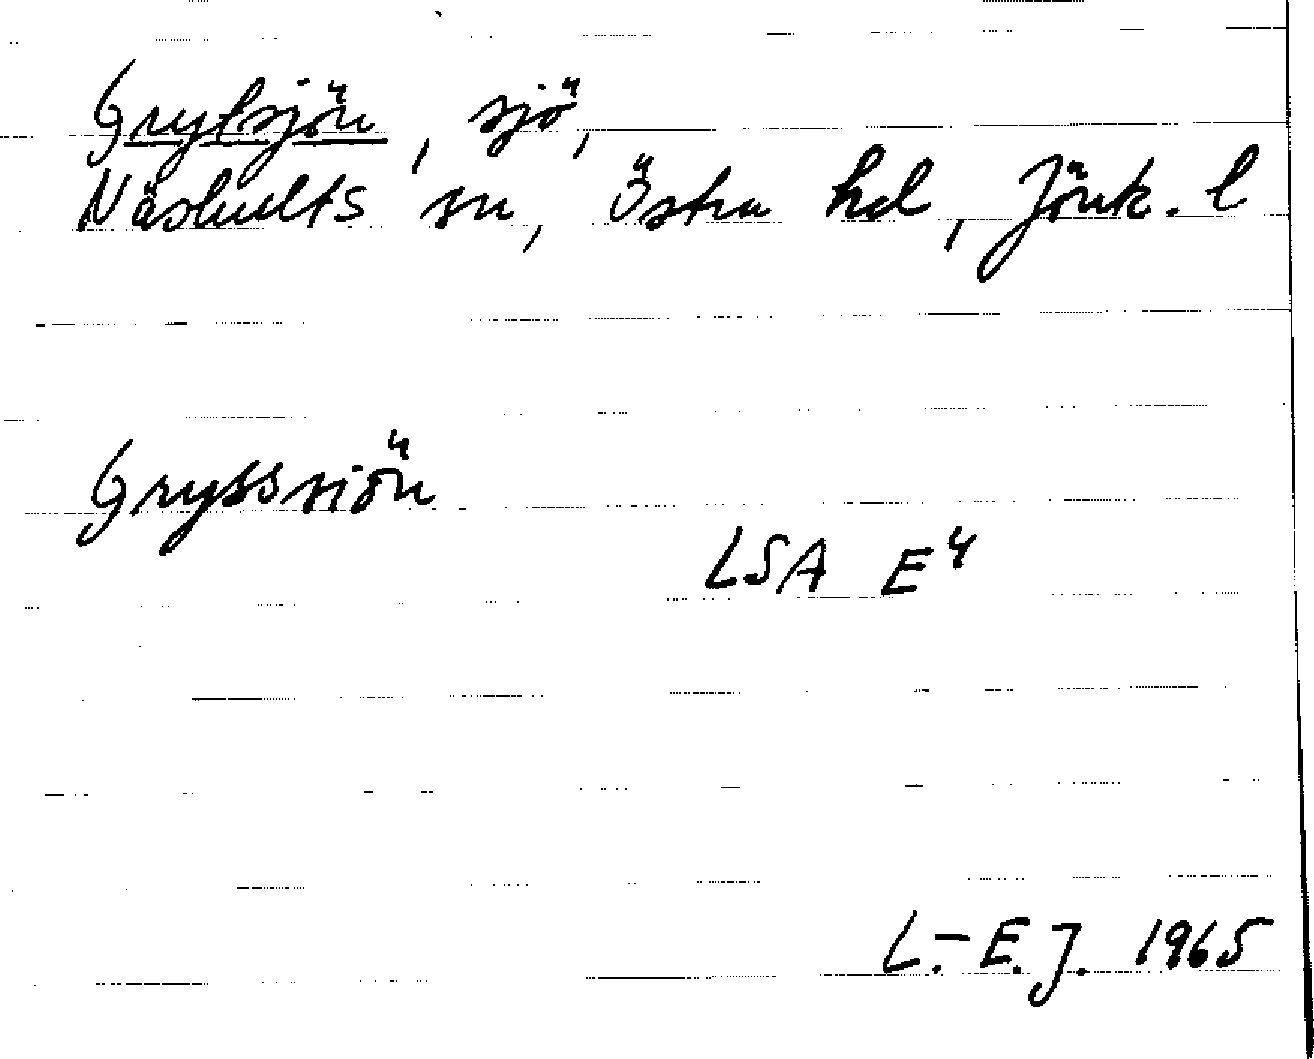 Grytsjön, sjö,
Näshults sn, Östra hd, Jönk. l
Grysssiön
LSA E4
L.-E.J. 1965